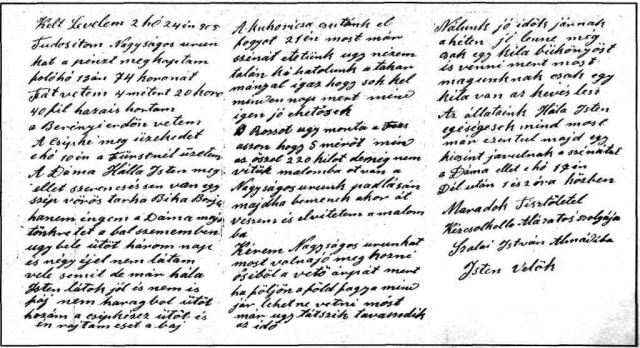 Kelt Levelem 2 hó 24 én 905
Tudositom Nagyságos urun
kat a pénzt meg kaptam
folóhó 19án 74 koronát
Fát vetem 4 métert 20 koro
40 fil hazais hortam
a Berényi erdőn vetem
A Csipke meg üzekedet
e hó 10 én a Fürstnél üzetem
A Dáma Hálla Isten meg
ellet szerencséssen van egy
szép vörös tarka Bika Borja
hanem engem a Dáma majd
tönkretet a bal szemem ben
ugy bele ütöt három nap
és négy éjel nem látam
vele semit de már hála
Isten látok jól és nem is
fáj nem haragbol ütöt
hozám a csipkéhez ütöt és
én rajtam eset a baj
A kukoricza csutánk el
fogyot 21 én most már
szénát etetünk ugy nézem
talán ki hatolunk a takar
mányal igaz hogy sok kel
minden nap mert mind
igen jó ehetösek
A Rossot ugy monta a
asson hogy 5 méröt min
az öszel 220 kilot de még nem
vitük malomba ot ván a
Nagyságos urunk padlásán
majdha bemenek akor át
veszem és elvitetem a malom
ba
Kérem Nagyságos urunkat
most volna jó meg hozni
ösiböl a vetö árpát mert
ha följön a föld fagya mind
jár lehetne vetni most
már ugy tétszik tavassodik
az idö
Nálunk jó idök járnak
a héten jó lenne még
csak egy kila bükönyöst
is venni mert most
magunknak csak egy
kila van az kevés lesz
Az állataink Hála Isten
egéségesek mind most
már ezentul majd egy
kicsint javulnak a szénátul
a Dáma ellet e hó 17én
Dél után 1 és 2 óra közben
Maradok Tisztölettel
Kézcsolkollo Alázatos szolgája
Szalai István Almádiba
Isten Velök